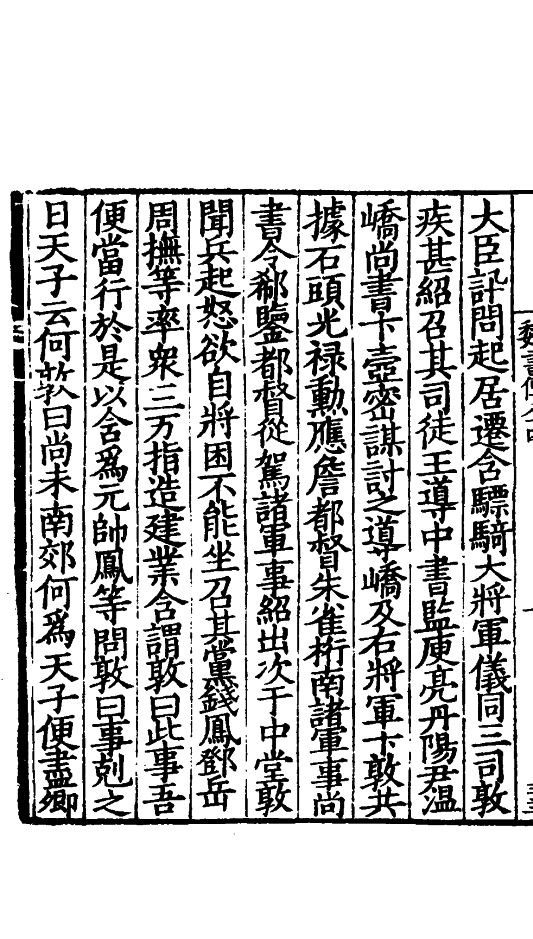 大臣訃問起居遷含驃騎大將軍儀同三司敦
疾甚紹召其司徒王導中書監庾亮丹陽尹温
嶠尚書卞壼密謀討之導嶠及右將軍卞敦共
據石頭光禄勳應詹都督朱雀桁南諸軍事尚
書令郗鑒都督從駕諸軍事紹出次于中堂敦
聞兵起怒欲自將困不能坐召其黨錢鳳鄧岳
周撫等率衆三万指造建業含謂敦曰此事吾
便當行於是以含爲元帥鳳等問敦曰事剋之
日天子云何敦曰尚未南郊何爲天子便盡卿